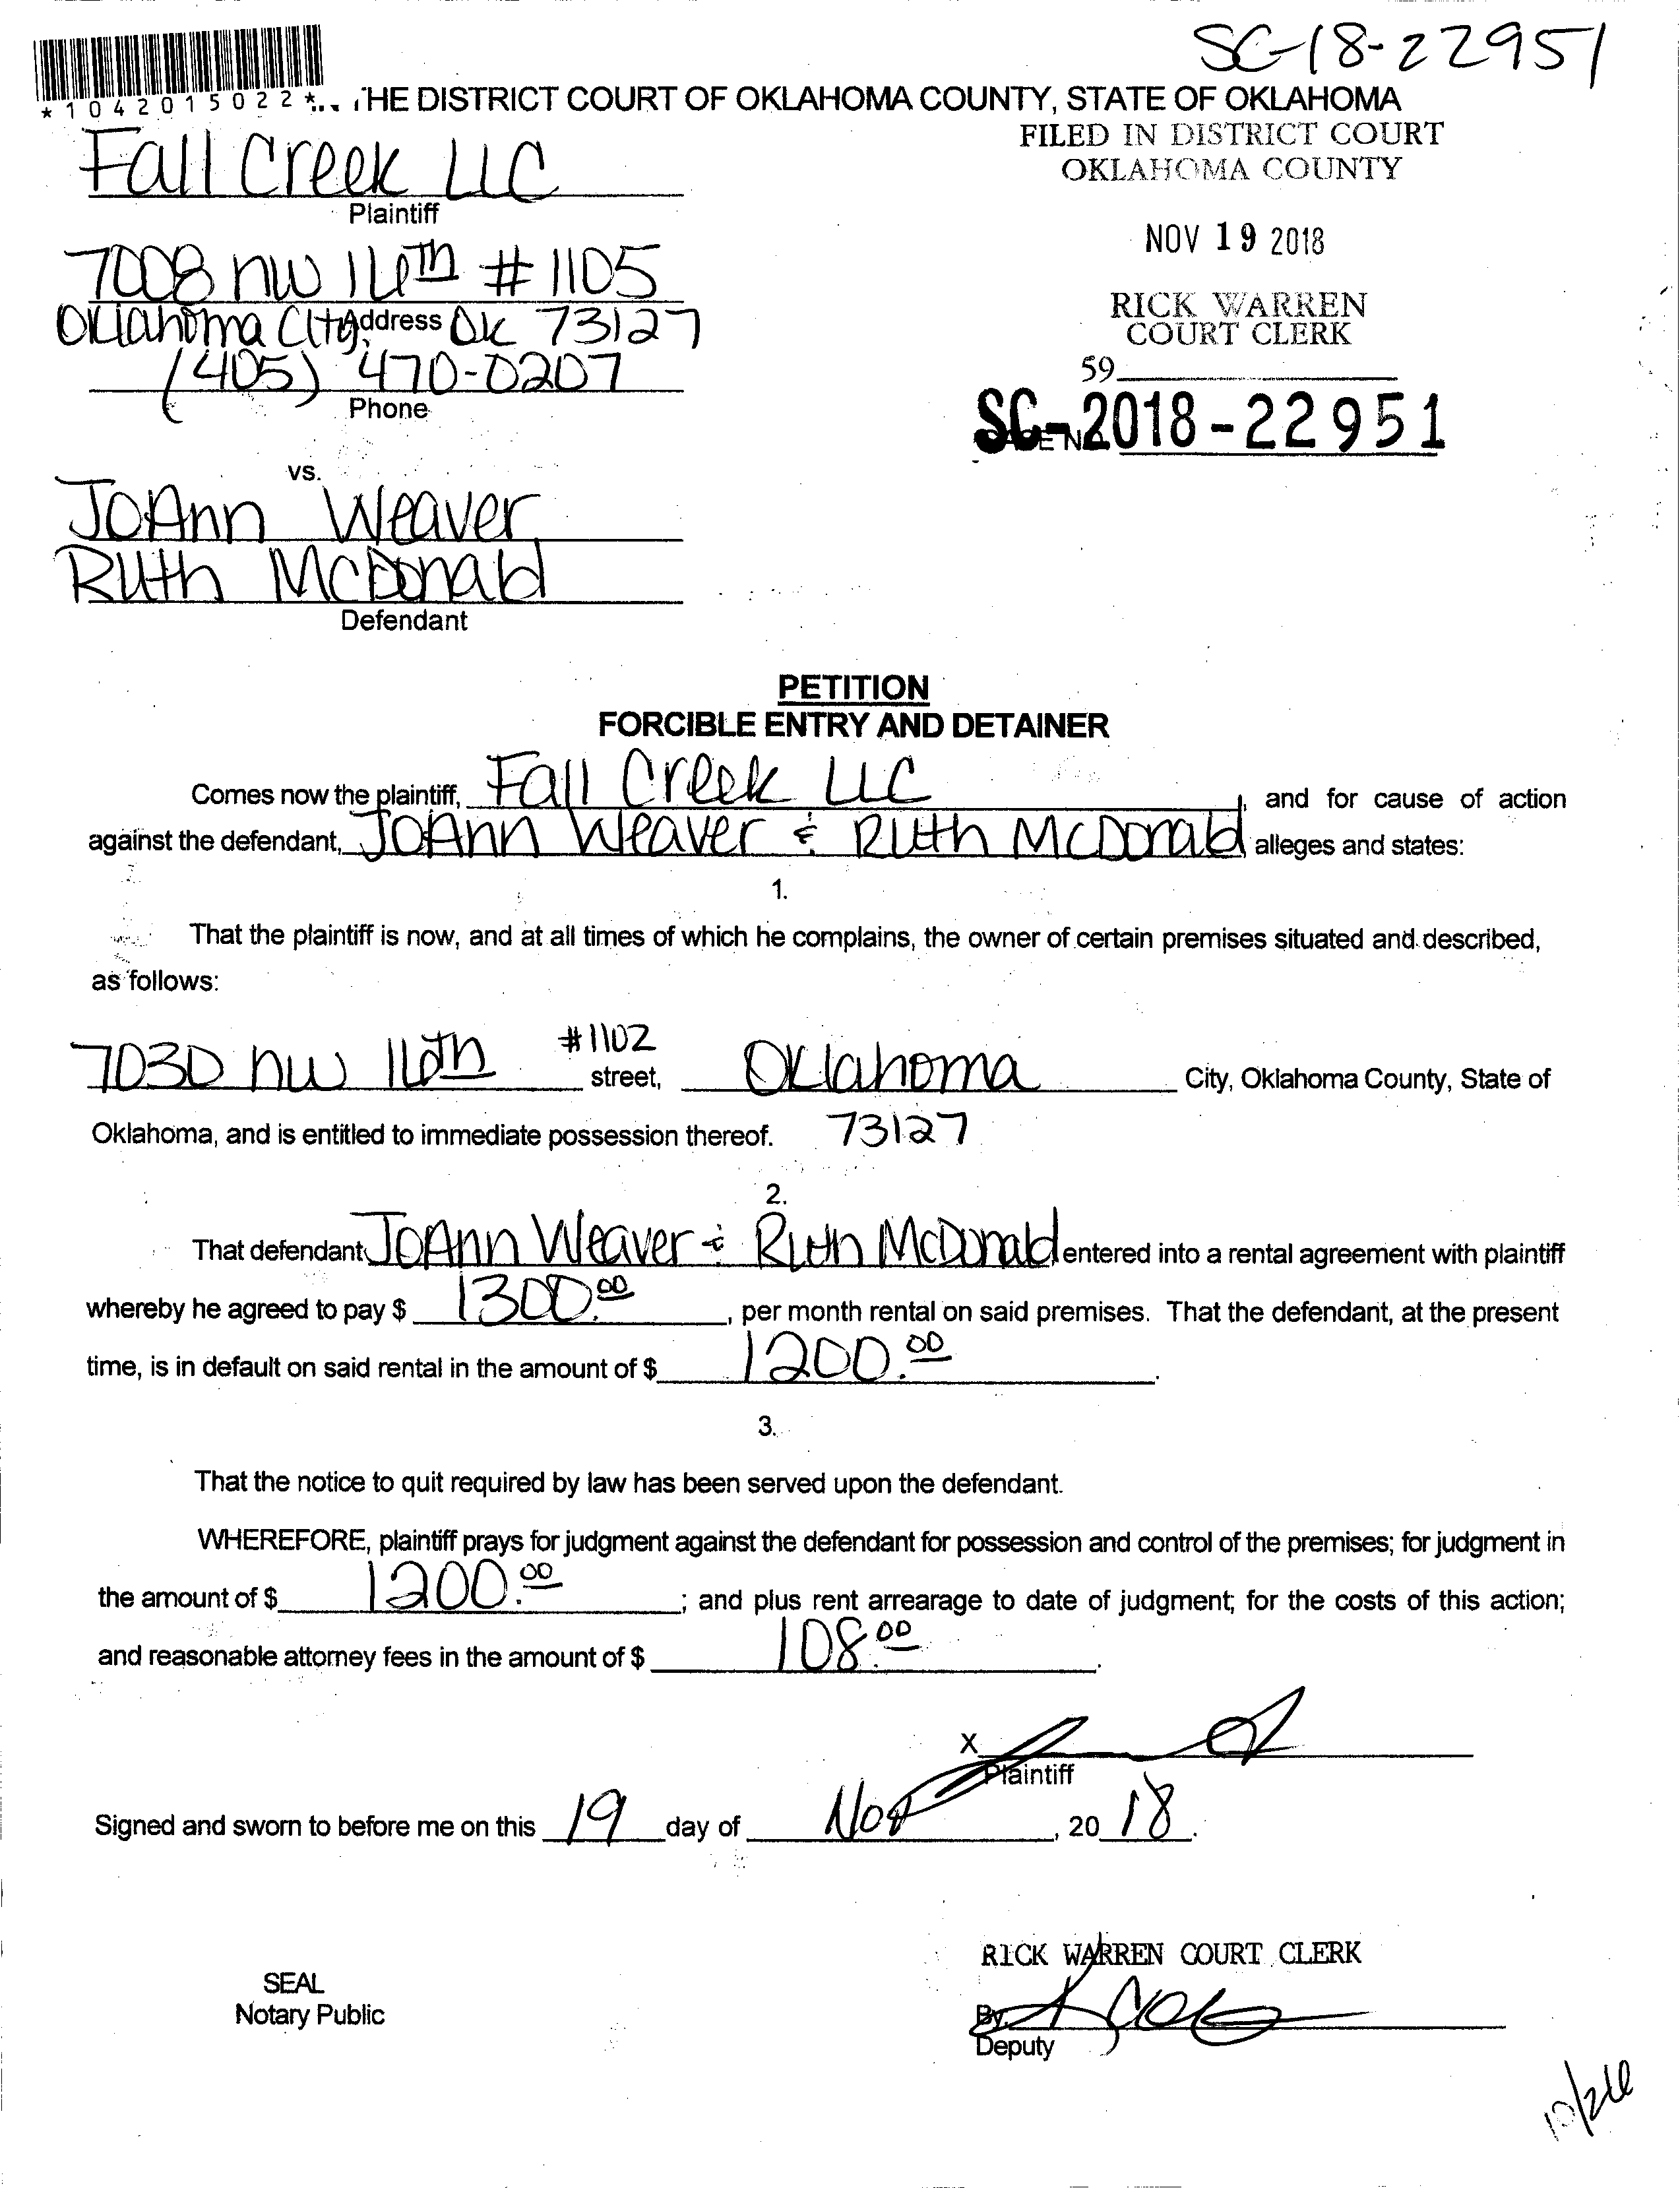 SC-18-22951
*1042015022*
THE DISTRICT COURT OF OKLAHOMA COUNTY, STATE OF OKLAHOMA
FILED IN DISTRICT COURT
OKLAHOMA COUNTY
Fall Creek LLC
Plaintiff
NOV 19 2018
7008 NW 16th #1105
Address
Oklahoma City, OK 73127
RICK WARREN
COURT CLERK
(405) 470-0207
Phone
59
SC-2018-22951
vs.
JoAnn Weaver
Ruth McDonald
Defendant
PETITION
FORCIBLE ENTRY AND DETAINER
Comes now the plaintiff, Fall Creek LLC, and for cause of action
against the defendant, JoAnn Weaver & Ruth McDonald alleges and states:
1.
That the plaintiff is now, and at all times of which he complains, the owner of certain premises situated and described,
as follows:
7030 NW 16th #1102 street, Oklahoma City, Oklahoma County, State of
Oklahoma, and is entitled to immediate possession thereof. 73127
2.
That defendant JoAnn Weaver & Ruth McDonald entered into a rental agreement with plaintiff
whereby he agreed to pay $ 1300.00, per month rental on said premises. That the defendant, at the present
time, is in default on said rental in the amount of $ 1200.00.
3.
That the notice to quit required by law has been served upon the defendant.
WHEREFORE, plaintiff prays for judgment against the defendant for possession and control of the premises; for judgment in
the amount of $ 1200.00; and plus rent arrearage to date of judgment; for the costs of this action;
and reasonable attorney fees in the amount of $ 108.00.
X
Plaintiff
Signed and sworn to before me on this 19 day of Nov, 20 18.
RICK WARREN COURT CLERK
SEAL
Notary Public
By
Deputy